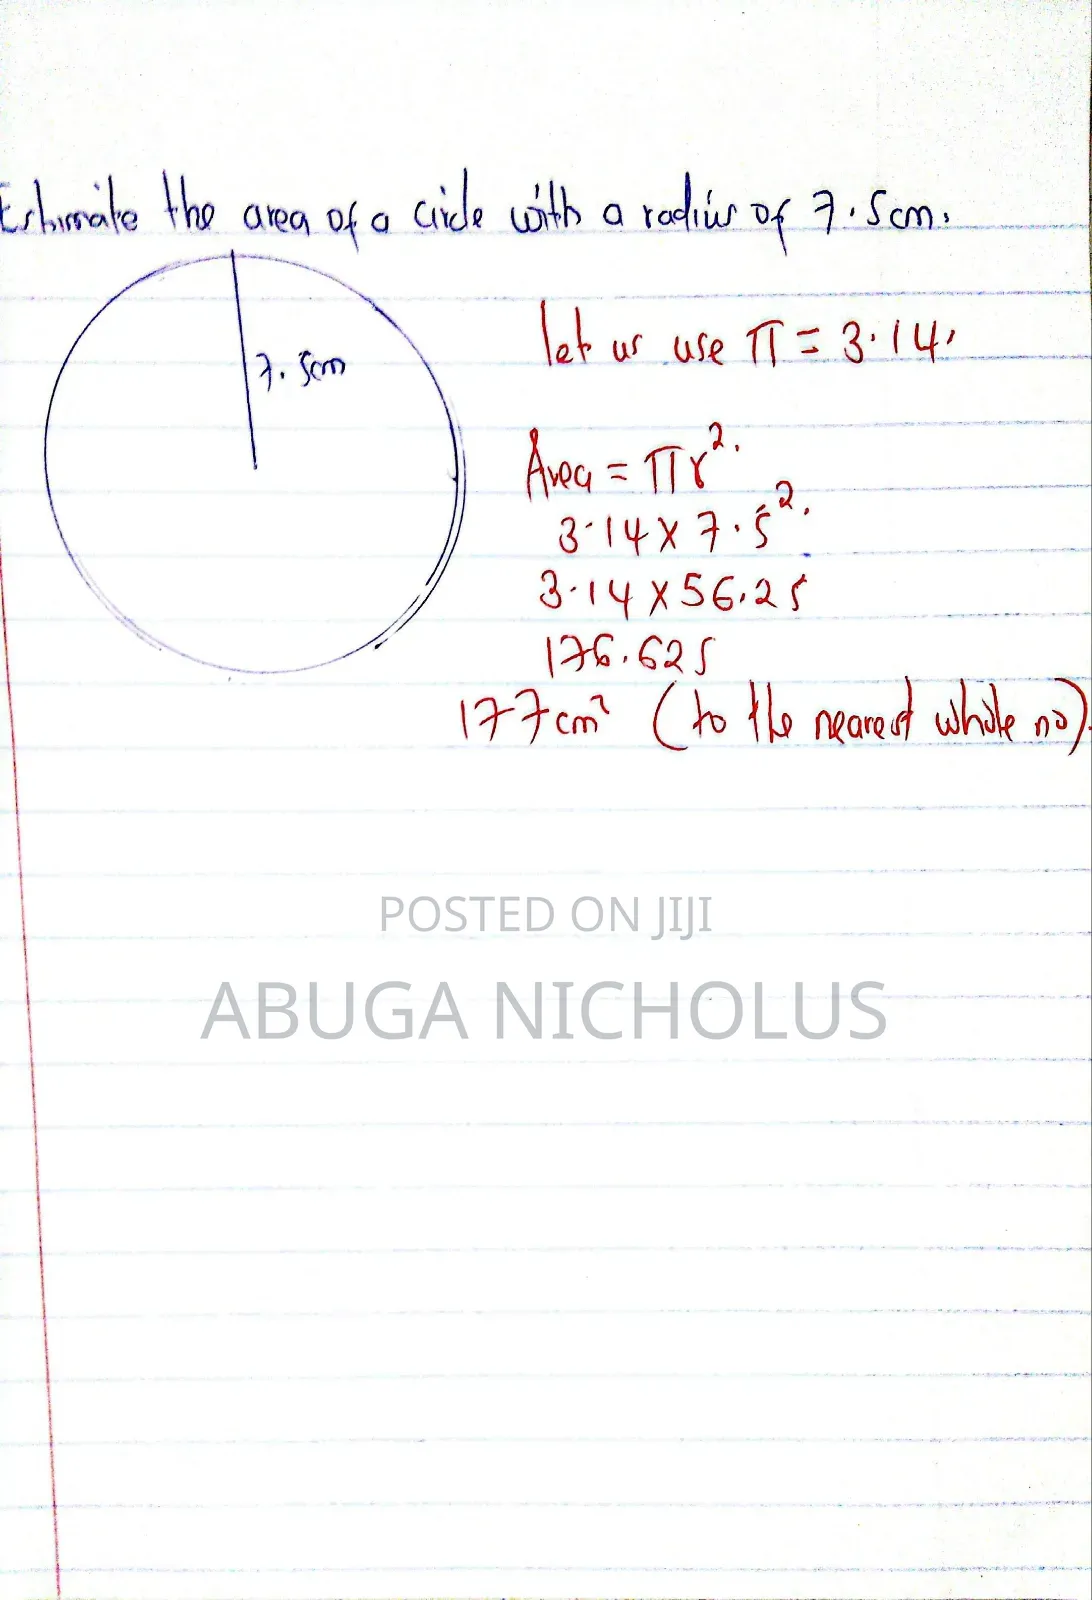 Estimate the area of a circle with a radius of 7.5cm.
7.5cm
let us use π = 3.14.
Area = πr².
3.14 × 7.5².
3.14 × 56.25
176.625
177cm² (to the nearest whole no).
POSTED ON JIJI
ABUGA NICHOLUS